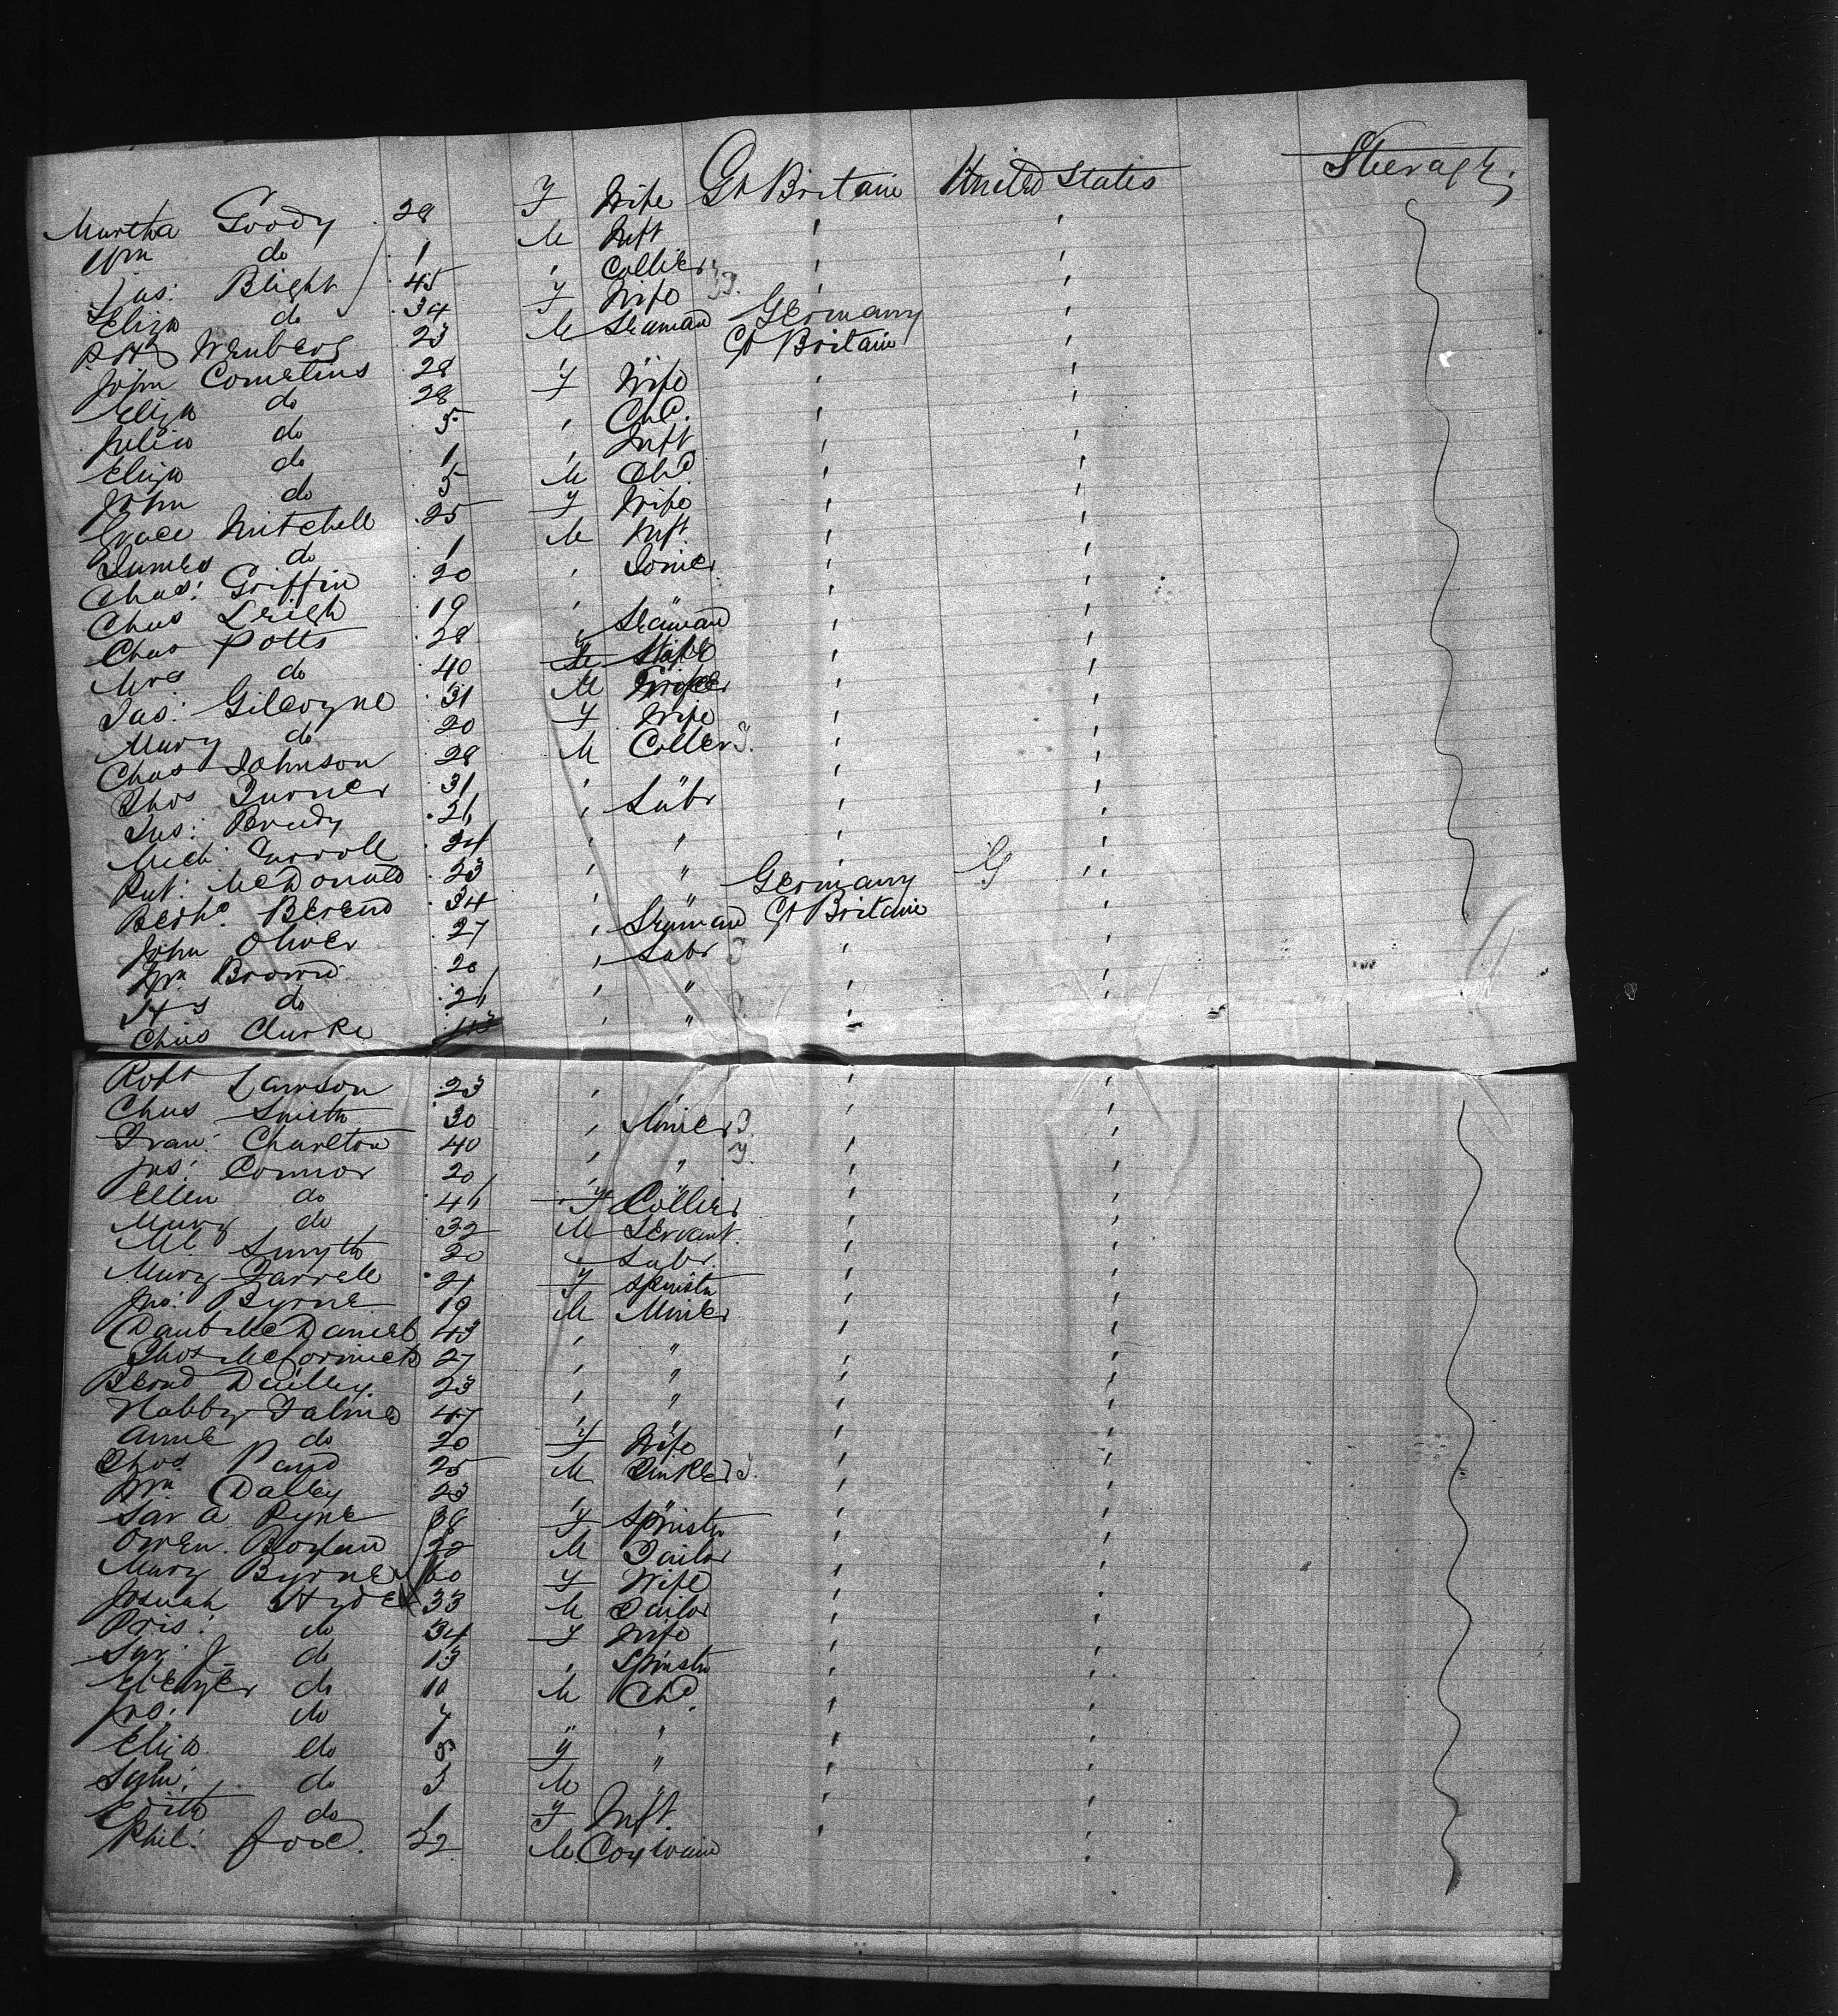 Martha Goody 28 F Wife Gt Britain United States Steerage
Wm do 1 M Inft
Jas: Blight 45 " Collier
Eliza do 34 F Wife
23 M Seaman Germany
John 28 Gt Britain
Eliza do 28 F Wife
Julia do 5 " Chd.
Eliza do 1 " Inft
John do 5 M Chd
Grace Mitchell 25 F Wife
James do 1 M Inft.
Chas: Griffin 20 "
Chas Leigh 19 " "
Chas Potts 28 " Seaman
Mrs do 40
Jas: Gilroyne 31 M
Mary do 20 F Wife
Chas Johnson 28 M Collier
Thos Turner 31 " "
Jas: Brady 21 " Labr
Mich: Carroll 24 " "
Pat: McDonald 23 " "
Berhd Berend 34 " " Germany
John Oliver 27 " Seaman Gt Britain
Wm Brown 20 " Labr
Hy do 21 " "
Chas Clarke " "
Robt Lawson 23 " "
Chas Smith 30 " Miner
Fran: Charlton 40 " "
Jas: Connor 20 " "
Ellen do 41 F Collier
Mary do 32 M Servant.
Ml. Smyth 20 " Labr.
Mary Farrell 21 F Spinstr
Jno: Byrne 19 M Miner
Danl McDaniel 43 " "
Thos McCormick 27 " "
Bernd Dailley. 23 " "
Nabby 47 " "
Anne do 20 F Wife
Thos. 25 M Tinker
Wm Dalley 23 " "
Sar a Ryne 38 F Spinstr
Owen Boylan 22 M Tailor
Mary Byrne 60 F Wife
Josuah Hyde 33 M Tailor
Pris: do 34 F Wife
Sar: J do 13 " Spinstr
Ebenzer do 10 M Chd.
Jno: do 7 " "
Eliza do 5 F "
do 3 M "
Edith do 1 F Inft.
Phil: 22 M Coxwain